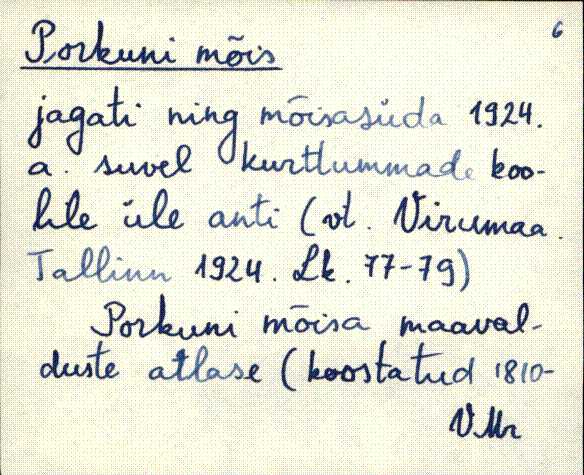 6
Porkuni mõis
jagati ning mõisasüda 1924.
a. suvel kurttummade koo-
lile üle anti (vt. Virumaa.
Tallinn 1924. Lk. 77-79)
Porkuni mõisa maaval-
duste atlase (koostatud 1810-
VMr